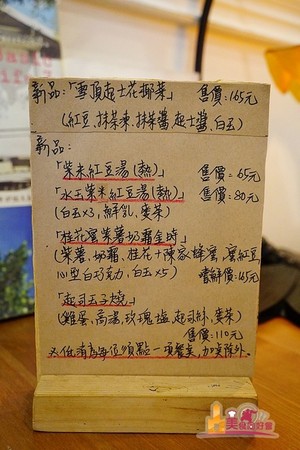 新品:「雪頂起士花椰菜」 售價:165元
(紅豆、抹茶凍、抹茶醬、起士醬、白玉)
新品:
「紫米紅豆湯(熱)」 售價:65元
「水玉紫米紅豆湯(熱)」 售價:80元
(白玉x3、鮮乳、麥茶)
「桂花蜜紫薯奶霜金時」
(紫薯、奶霜、桂花+陳家蜂蜜、蜜紅豆
心型白巧克力、白玉x5) 嘗鮮價:165元
「起司玉子燒」
(雞蛋、高湯、玫瑰塩、起司絲、麥茶)
售價:110元
※低消為每位須點一項餐点,加点除外。